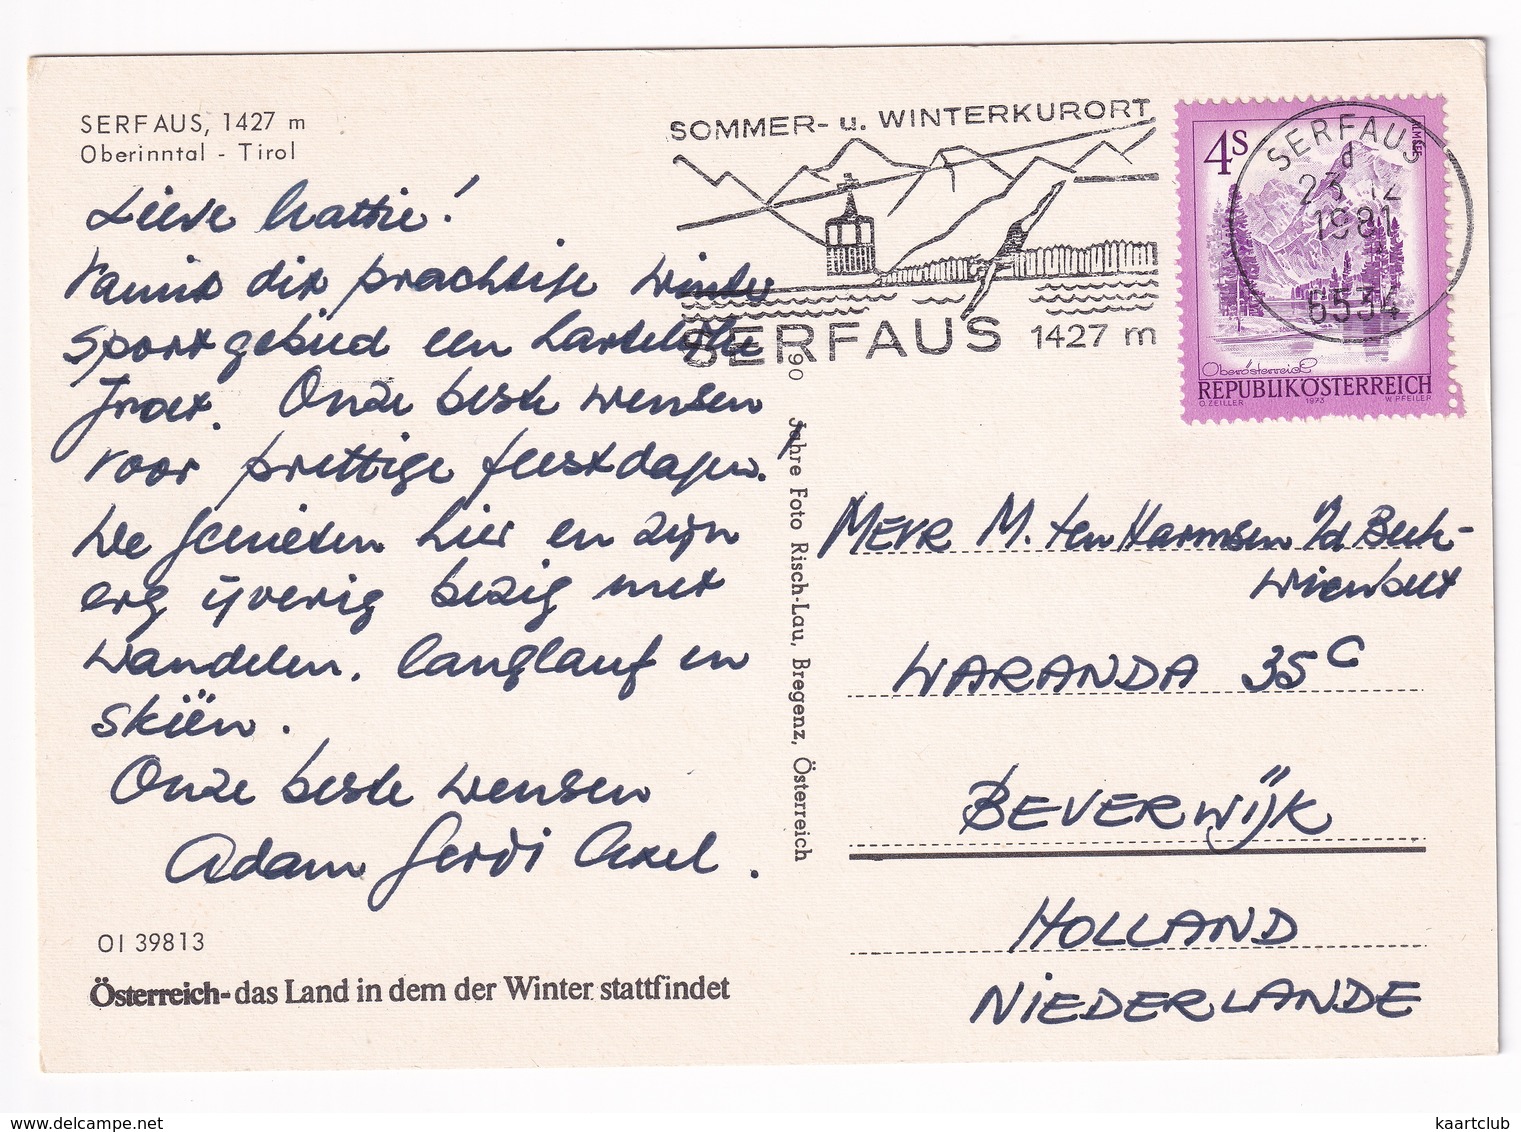 SERFAUS, 1427 m
Oberinntal - Tirol
Lieve Mattie!
Vanuit dit prachtige winter
sportgebied een hartelijke
groet. Onze beste wensen
voor prettige feestdagen.
We genieten hier en zijn
erg ijverig bezig met
wandelen, langlauf en
skiën.
Onze beste wensen
Adam Gerdi Axel.
OI 39813
Österreich-das Land in dem der Winter stattfindet
90 Jahre Foto Risch-Lau, Bregenz, Österreich
SOMMER- u. WINTERKURORT
SERFAUS 1427 m
SERFAUS
d
23 12
1981
6534
4S
ALMSEE
Oberösterreich
REPUBLIK ÖSTERREICH
O. ZEILLER 1973 W. PFEILER
MEVR M. ten Harmsen v/d Beek-
WARANDA 35C
BEVERWIJK
HOLLAND
NIEDERLANDE
www.delcampe.net
kaartclub